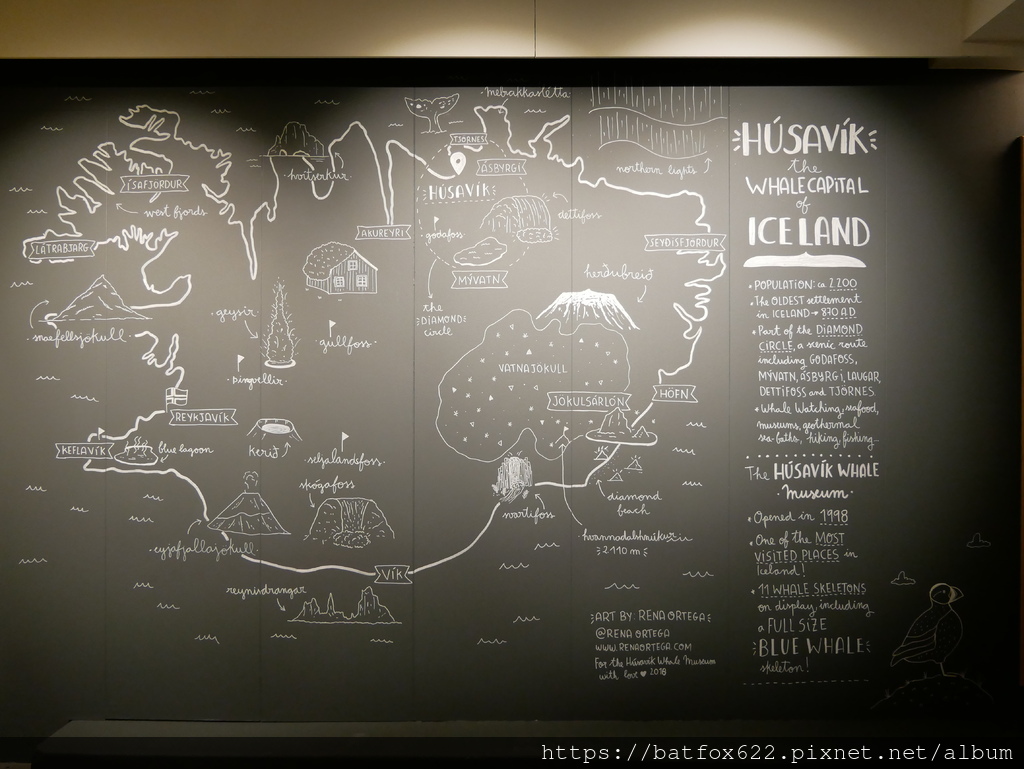 melrakkaslétta
TJÖRNES
ÁSBYRGI
HÚSAVÍK
northern lights
hvítserkur
ÍSAFJÖRÐUR
west fjords
LÁTRABJARG
AKUREYRI
goðafoss
dettifoss
MÝVATN
SEYÐISFJÖRÐUR
herðubreið
the
DIAMOND
circle
snæfellsjökull
geysir
gullfoss
þingvellir
VATNAJÖKULL
JÖKULSÁRLÓN
HÖFN
REYKJAVÍK
KEFLAVÍK
blue lagoon
kerið
seljalandsfoss
skógafoss
svartifoss
diamond
beach
hvannadalshnúkur
2.110 m
eyjafjallajökull
VÍK
reynisdrangar
ART BY: RENA ORTEGA
@RENAORTEGA
WWW.RENAORTEGA.COM
For the Húsavík Whale Museum
with love ♥ 2018
HÚSAVÍK
the
WHALE CAPITAL
of
ICELAND
• POPULATION: ca 2200
• The OLDEST settlement
in ICELAND → 870 AD
• Part of the DIAMOND
CIRCLE, a scenic route
including GODAFOSS,
MÝVATN, ÁSBYRGI, LAUGAR,
DETTIFOSS and TJÖRNES
• Whale Watching, seafood,
museums, geothermal
sea baths, hiking, fishing...
The HÚSAVÍK WHALE
Museum
• Opened in 1998
• One of the MOST
VISITED PLACES in
Iceland!
• 11 WHALE SKELETONS
on display, including
a FULL SIZE
BLUE WHALE
skeleton!
https://batfox622.pixnet.net/album